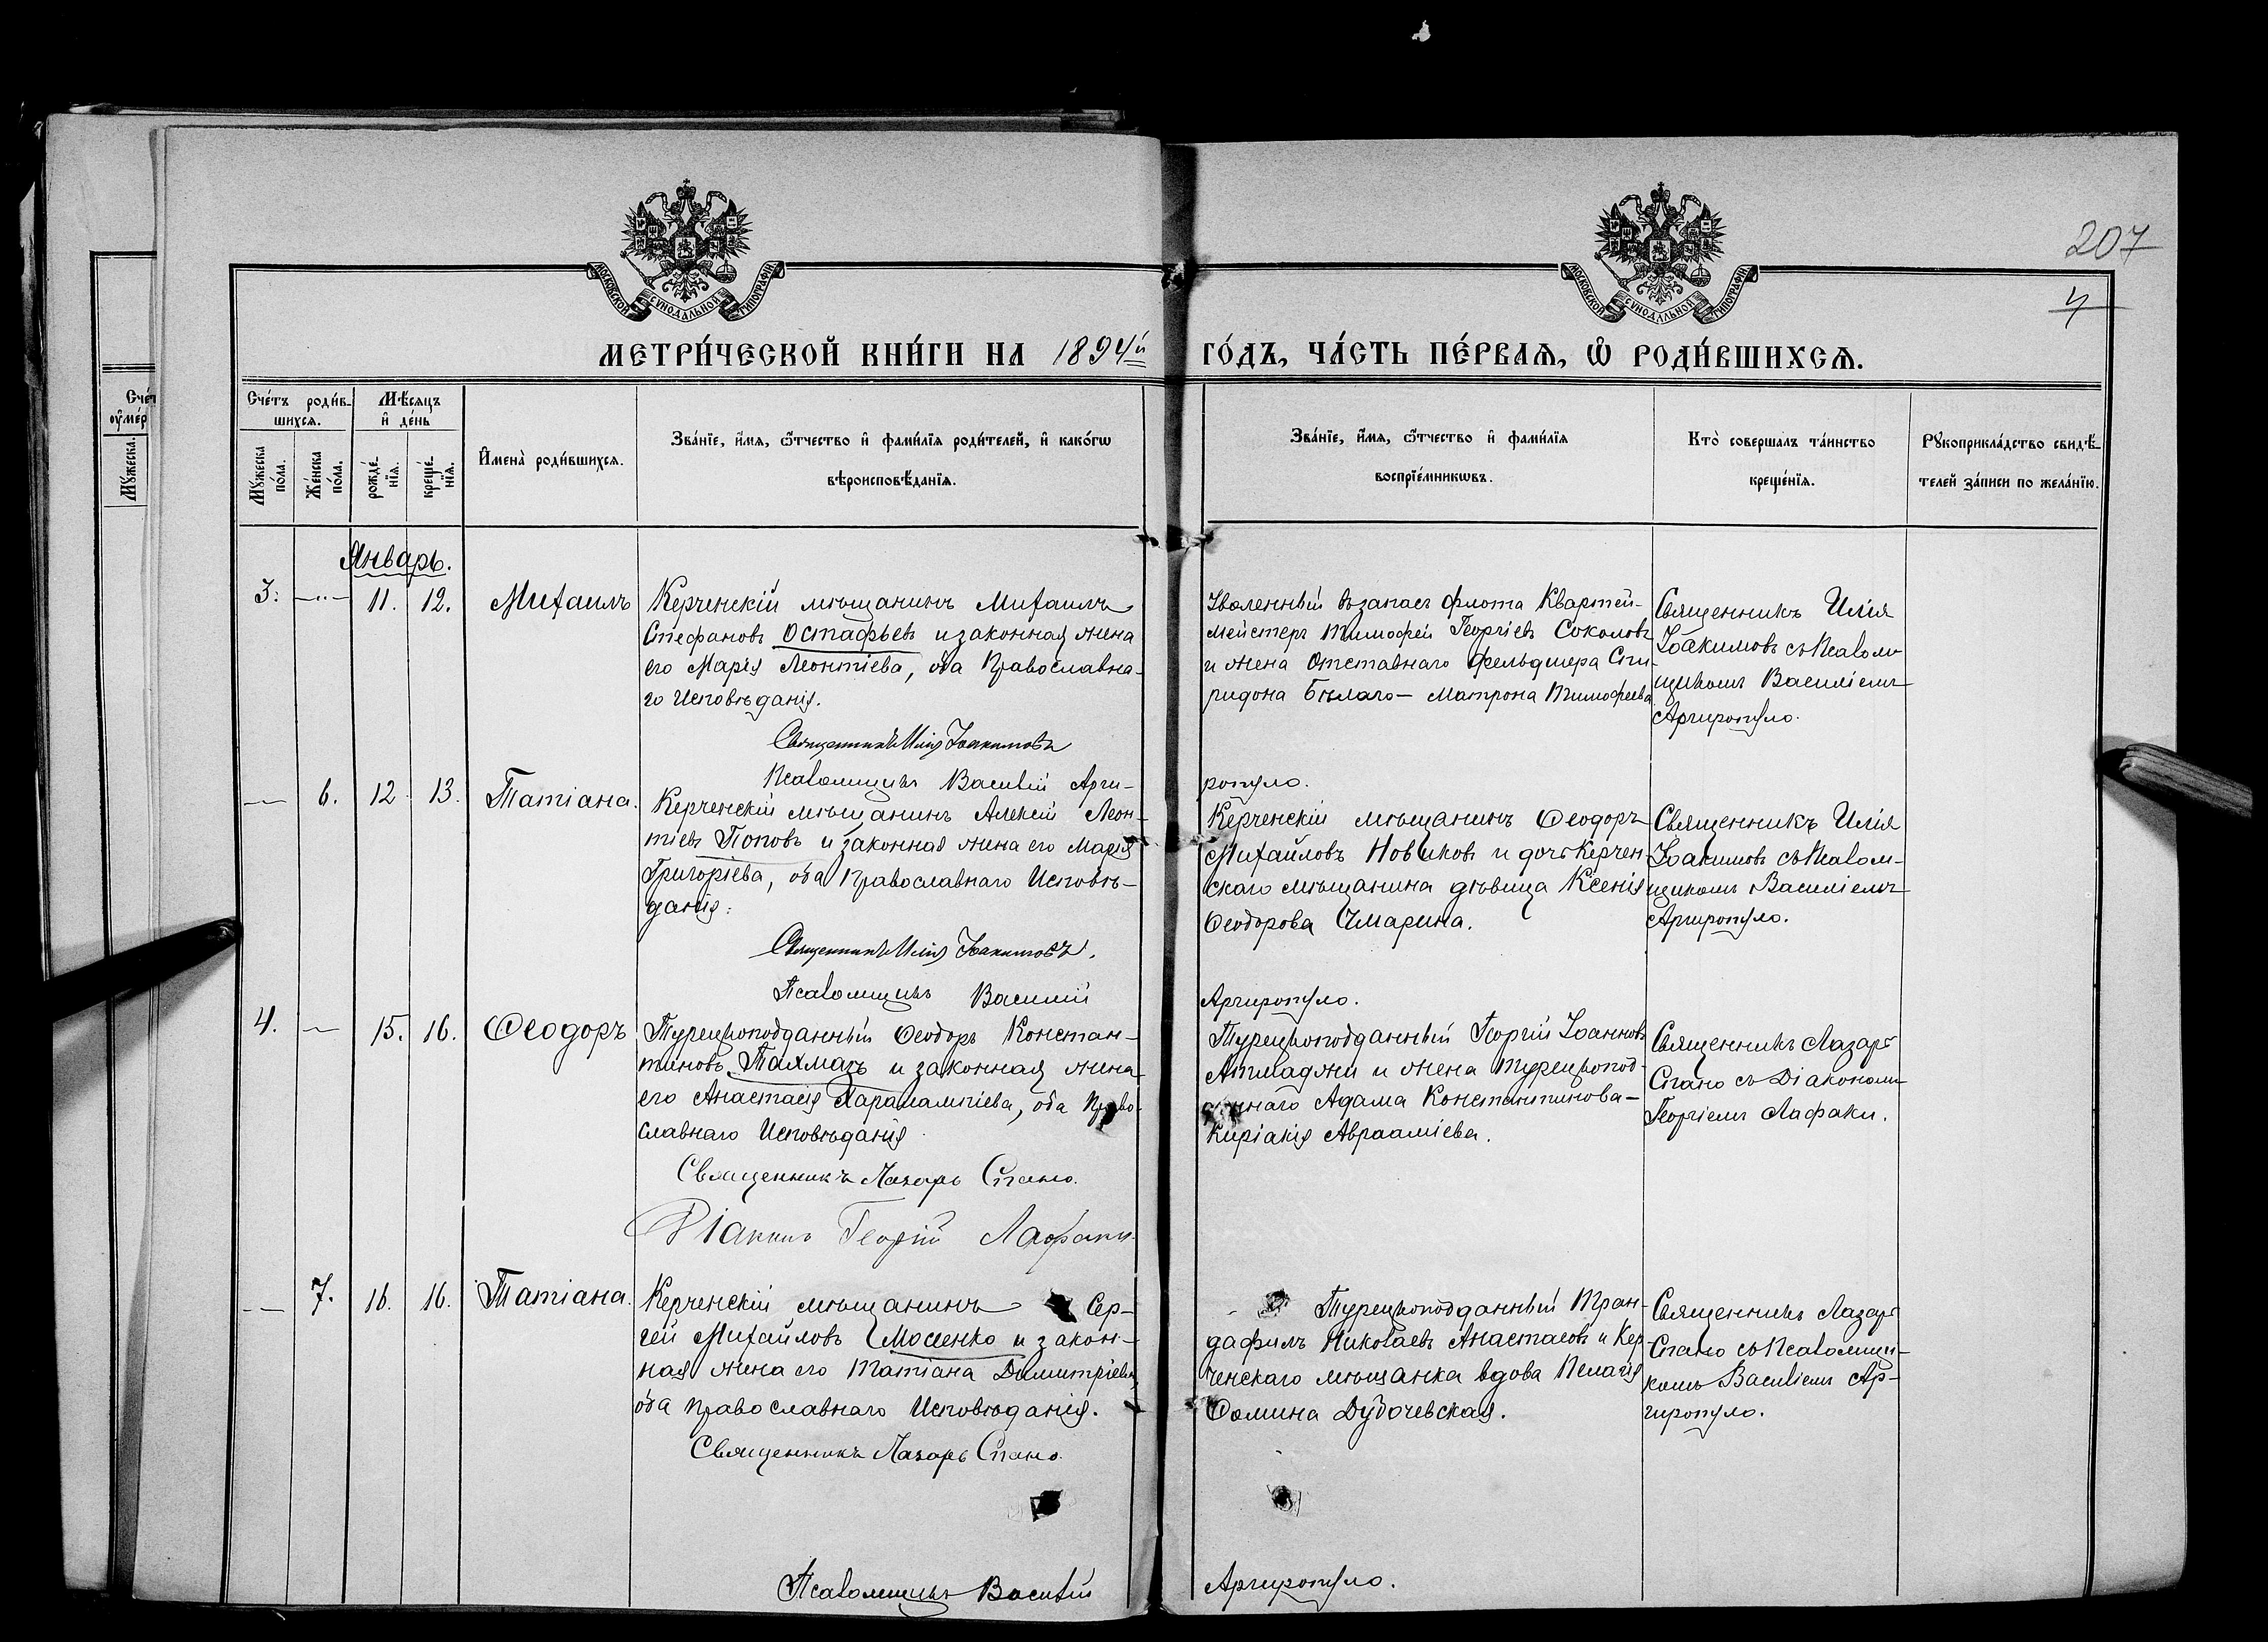 МОСКОВСКОЙ СѴНОДАЛЬНОЙ ТИПОГРАФІИ
МОСКОВСКОЙ СѴНОДАЛЬНОЙ ТИПОГРАФІИ
207
4
МЕТРИ́ЧЕСКОЙ КНИ́ГИ НА 1894й ГО́ДЪ, ЧА́СТЬ ПЕ́РВАЯ, Ѡ РОДИ́ВШИХСЯ.
Сче́тъ роди́в-
шихся.
Мѣ́сяцъ
и де́нь
Му́жеска
по́ла.
Же́нска
по́ла.
рожде́-
нїя.
креще́-
нїя.
Имена̀ роди́вшихся.
Зва́нїе, и́мя, ѻ́тчество и фами́лїя роди́телей, и како́гѡ
вѣроисповѣ́данїя.
Зва́нїе, и́мя, ѻ́тчество и фами́лїя
воспрїе́мникѡвъ.
Кто̀ соверша́лъ та́инство
креще́нїя.
Рукоприкла́дство свидѣ́-
телей за́писи по жела́нїю.
Сче́т
оуме́р
Му́жеска.
Январь.
3. —"— 11. 12. Михаилъ
Керченскій мѣщанинъ Михаилъ
Стефановъ Остафьевъ и законная жена
его Марія Леонтіева, оба Православна-
го Исповѣданія.
Священникъ Илія Іоакимовъ
Псаломщикъ Василій Арги-
Уволенный въ запасъ флота Квартей-
мейстеръ Тимофей Георгіевъ Соколовъ
и жена Отставнаго фельдшера Спи-
ридона Бѣлаго — Матрона Тимофеева
ропуло.
Священникъ Илія
Іоакимовъ съ Псалом-
щикомъ Василіемъ
Аргиропуло.
— 6. 12 13. Татіана.
Керченскій мѣщанинъ Алексій Леон-
тіевъ Поповъ и законная жена его Марія
Григоріева, оба Православнаго Исповѣ-
данія.
Священникъ Илія Іоакимовъ.
Псаломщикъ Василій
Керченскій мѣщанинъ Ѳеодоръ
Михайловъ Новиковъ и дочь Керчен-
скаго мѣщанина дѣвица Ксенія
Ѳеодорова Чмарина.
Аргиропуло.
Священникъ Илія
Іоакимовъ съ Псалом-
щикомъ Василіемъ
Аргиропуло.
4. — 15. 16. Ѳеодоръ
Турецкоподданный Ѳеодоръ Констан-
тиновъ Палмачъ и законная жена
его Анастасія Харалампіева, оба Право-
славнаго Исповѣданія.
Священникъ Лазарь Спано.
Діаконъ Георгій Лафаки.
Турецкоподданный Георгій Іоанновъ
и жена Турецкопод-
даннаго Адама Константинова —
Киріакія Авраамiева.
Священникъ Лазарь
Спано съ Діакономъ
Георгіемъ Лафаки.
— 7. 16. 16. Татіана.
Керченскій мѣщанинъ Сер-
гей Михайловъ Мосенко и закон-
ная жена его Татіана Димитріева,
оба Православнаго Исповѣданія.
Священникъ Лазарь Спано.
Псаломщикъ Василій
Турецкоподданный Тран-
дафилъ Николаевъ Анастасовъ и Кер-
ченскаго мѣщанка вдова Пелагія
Ѳомина Дубочевская.
Аргиропуло.
Священникъ Лазарь
Спано съ Псаломщи-
комъ Василіемъ Ар-
гиропуло.